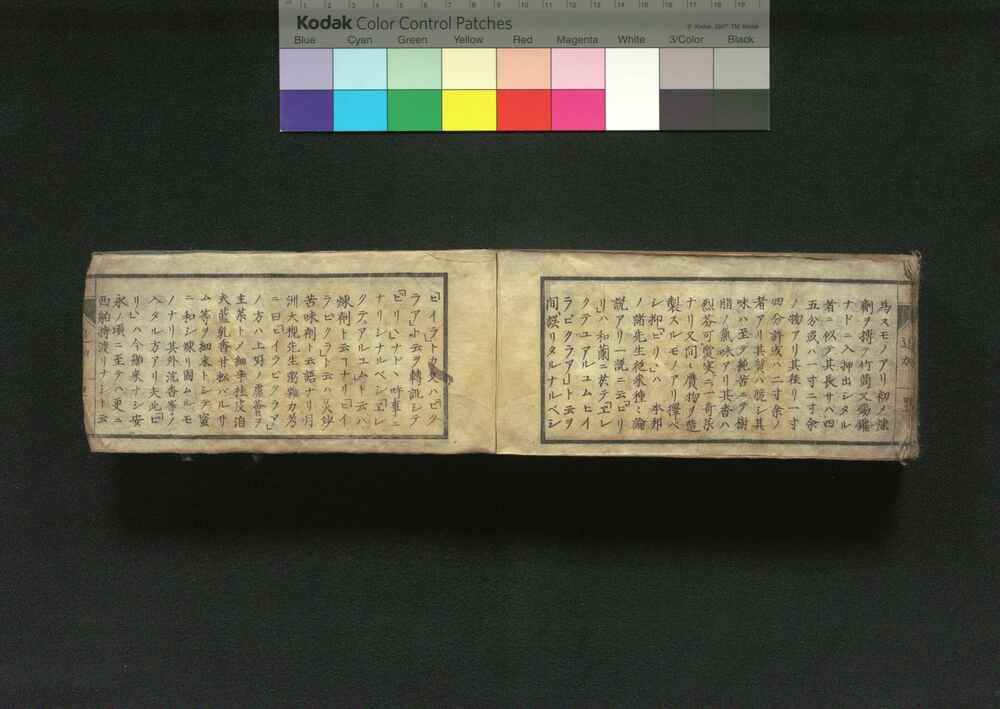 Kodak Color Control Patches
© Kodak, 2007 TM: Kodak
Blue Cyan Green Yellow Red Magenta White 3/Color Black
為スモノアリ初ノ法
劑ヲ搏テ竹筒又
ナドニ入押出シタル
者ニ似タ其長サハ四
五分或ハ一寸二寸余
ノ物アリ其柱リ一寸
四分許或ハ二寸余ノ
者アリ其質ハ脆シ其
味ハ至テ純苦ニテ樹
脂ノ氣味アリ其香ハ
烈芬可賞実ニ一奇薬
ナリ又間々贋物ヲ造
製スルモノアリ擇ベ
シ抑「ピリリ」ハ本邦
ノ諸先生従来種々論
説アリ一説ニ云ピリ
リハ和蘭ニ共テヱレ
クテユアルユムヒイ
ラピクラアト云ヲ
間誤リタルナルベシ
ヒイラトカ又ハピク
ラアト云ヲ轉訛シテ
「ピリリ」ナドハ呼事ニ
ナリシナルベシ「ヱレ
クテアルユム」ハ
煉劑ト云フナリ「ヒイ
ラピクラ」ト云ハ大
苦味劑ト云語ナリ
洲大槻先生
ニ曰「ヒイラピクラア」
ノ方ハ上好ノ蘆薈ヲ
主薬トノ細辛桂皮泊
夫藍乳香甘松バルサ
ム等ヲ細末トシテ蜜
ニ和シ煉リ固ムルモ
ノナリ其外沈香等ノ
入タル方アリ又此「ピ
リリ」ハ今舶来ナシ安
永ノ頃ニ至テハ更ニ
西舶持渡リナシト云